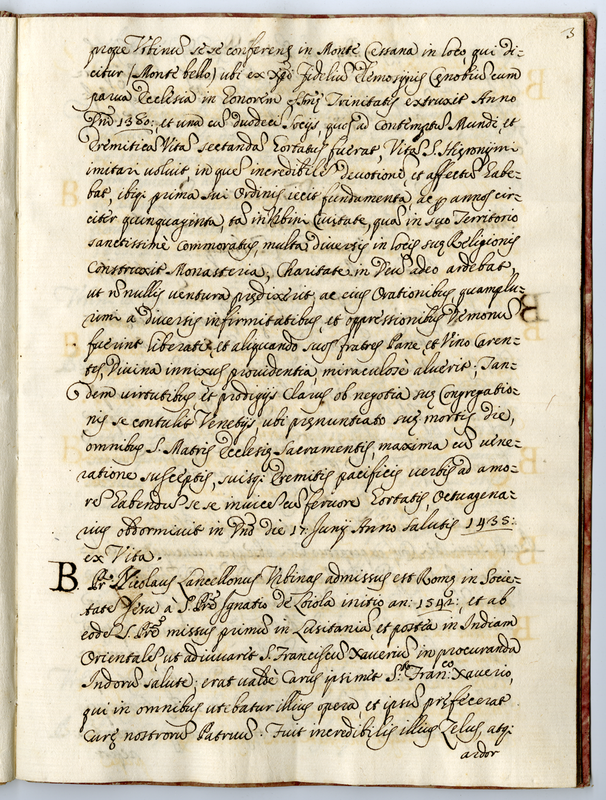 3
prope Urbinũ se se conferens in Monte Cessana in loco qui di=
citur (Monte bello) ubi ex Xp̃i fideliũ elemosynis Cenobiũ cum
parua Ecclesia in honorem Sſm̃ę Trinitatis extruxit Anno
Dn̄i 1380: et una cũ duodeci Socijs, quos ad Contemptũ Mundi, et
Eremiticã Vitã sectandã hortatus fuerat, Vitã S. Hieronymi
imitari voluit, in quẽ incredibilẽ devotionẽ, et affectũ habe=
bat, ibiq; prima sui Ordinis iecit fundamenta ac p annos cir=
citer quinquaginta, tã in Urbini Ciuitate, quã in suo Territorio
sanctissime Commoratus, multa diversis in locis suę Religionis
Construxit Monasteria, Charitate in Deũ adeo ardebat
ut nõnullis ventura prędixerit, ac eius Orationibus quamplu=
rimi à diversis infirmitatibus, et oppressionibus Demonũ
fuerint liberati, et aliquando suos fratres Pane, et Vino Caren=
tes, Divina innixus providentia, miraculose aluerit; Tan=
dem virtutibus et prodigijs Clarus ob negotia suę Congregatio=
nis se contulit Venetijs ubi prenunciato suę mortis die,
omnibus S. Matris Ecclesię Sacramentis, maxima cũ vene=
ratione susceptis, suisq; Eremitis pacificis verbis ad amo=
rẽ habendũ se se invicẽ cũ fervore hortatis, Octuagena=
rius obdormivit in Dn̄o die 17. Junij Anno salutis 1435:
ex Vita.
B Pr̃ Nicolaus Lancellonus Urbinas admissus est Romę in Socie=
tatẽ Jesu à S. Prẽ Ignatio de Loiola initio an: 1542: et ab
eodẽ S. Prẽ missus primũ in Lusitaniã, et postea in Indiam
Orientalẽ ut adiuvarit S. Franciscũ Xaueriũ in procuranda
Indorũ salute; erat valdè Carus ipsimet S.to Fran.co Xauerio,
qui in omnibus utebatur illius opera, et ipsũ pręfecerat
Curę nostrorũ Patrum. Fuit incredibilis illius Zelus, atq;
ardor